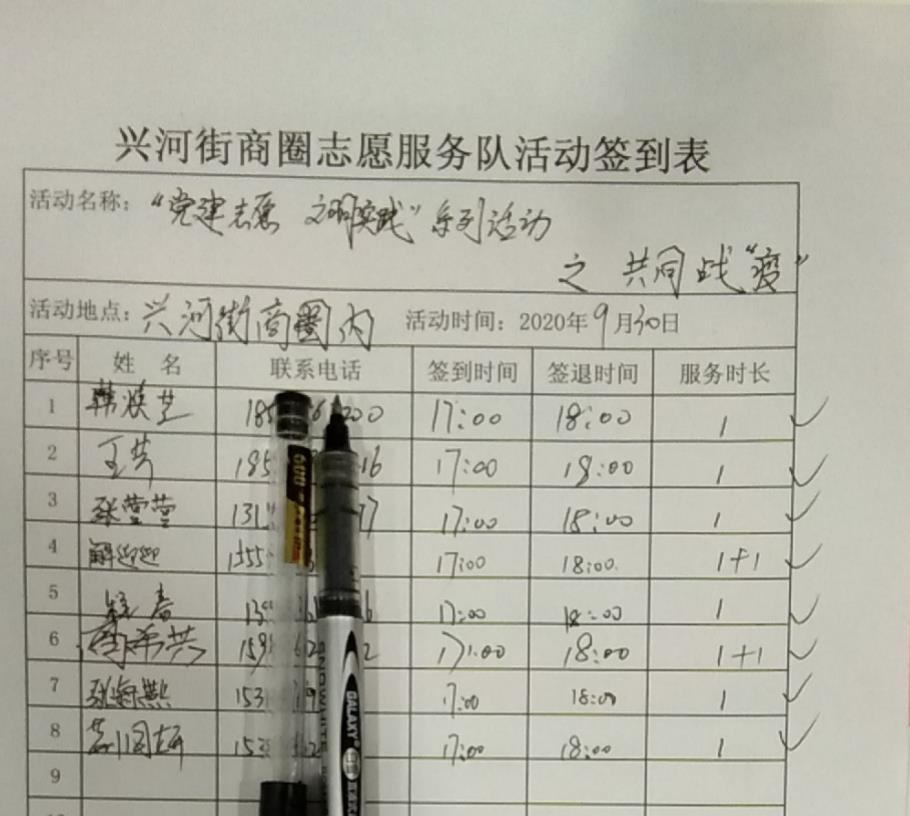 兴河街商圈志愿服务队活动签到表
活动名称：“党建志愿 文明实践”系列活动
之 共同战“疫”
活动地点：兴河街商圈内 活动时间：2020年9月30日
序号 姓 名 联系电话 签到时间 签退时间 服务时长
1 韩焕芝 185 200 17:00 18:00 1
2 王芳 185 16 17:00 18:00 1
3 张莹莹 131 17:00 18:00 1
4 解迎迎 155 17:00 18:00. 1+1
5 17:00 18:00 1
6 159 2 17:00 18:00 1+1
7 153 17:00 18:00 1
8 153 17:00 18:00 1
9
GALAXY